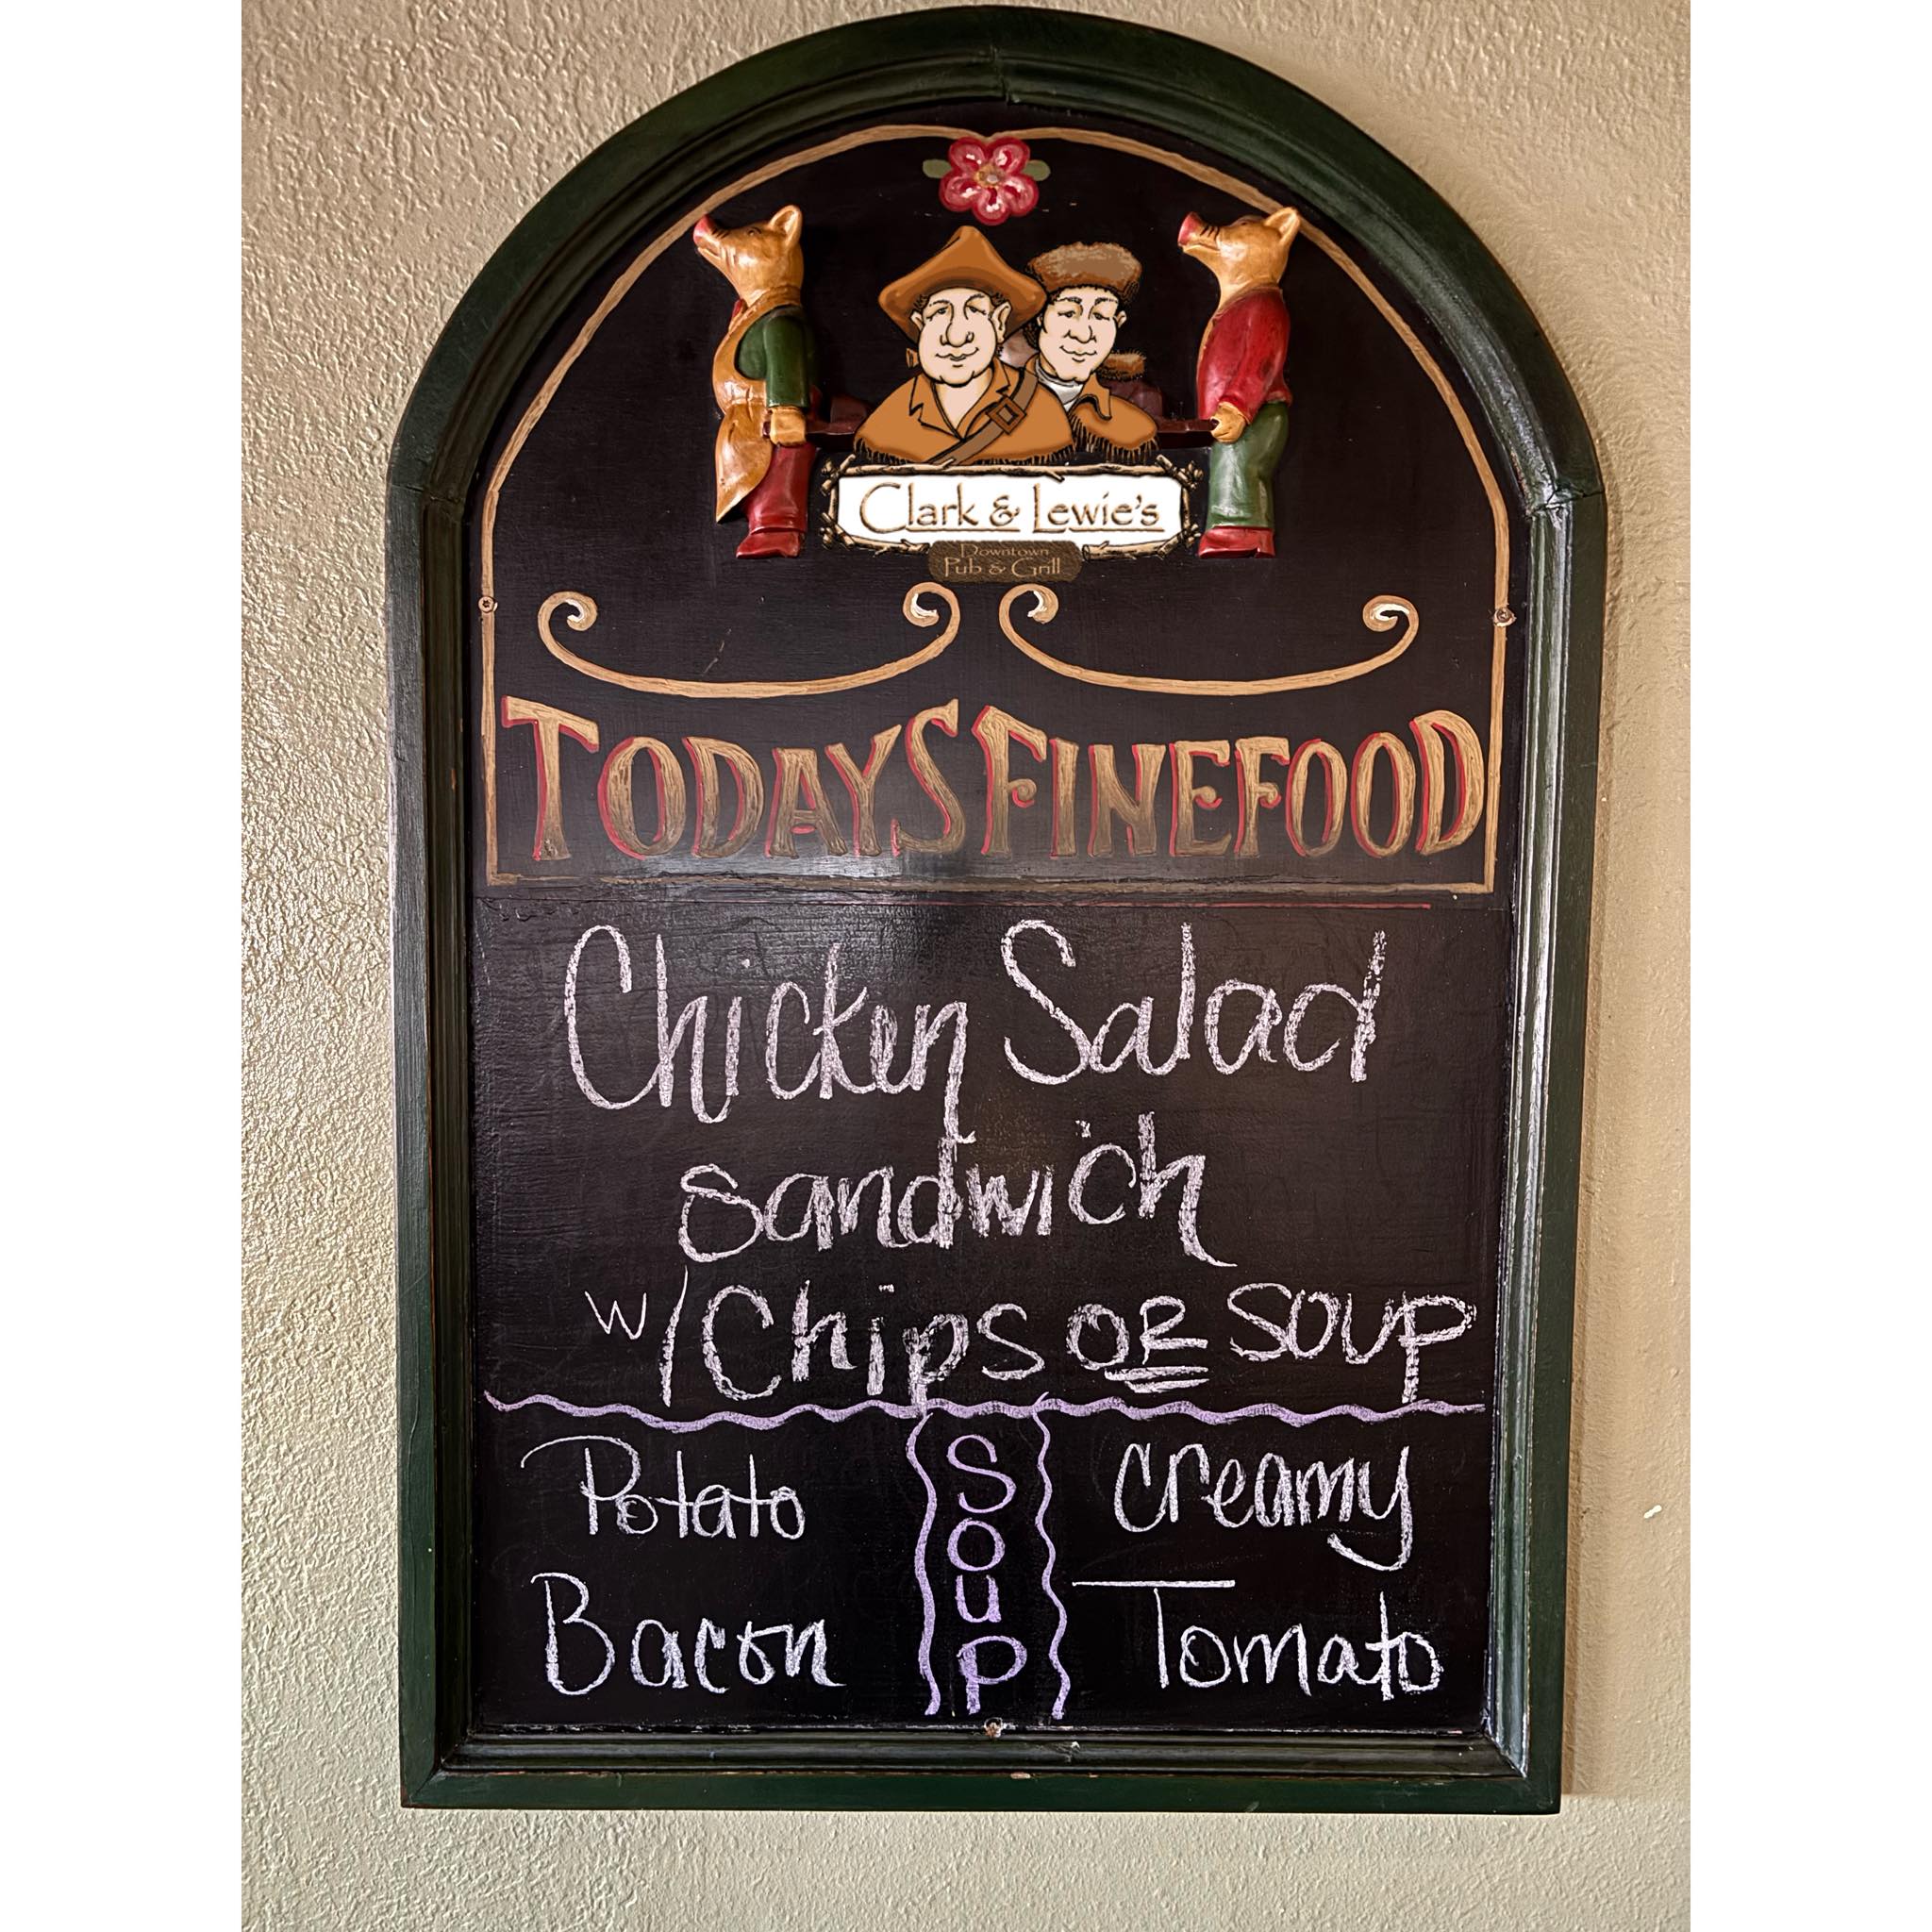 Clark & Lewie's
Downtown
Pub & Grill
TODAYS FINE FOOD
Chicken Salad
sandwich
w/Chips OR SOUP
Potato
Bacon
SOUP
creamy
Tomato